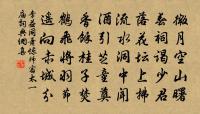 微月空山曙
春祠謁少君
落花壇上拂
流水洞中聞
酒引芝童奠
香餘桂子焚
鶴飛將羽節
遙向赤城分
李益同蕭煉師宿太一
廟詞典網